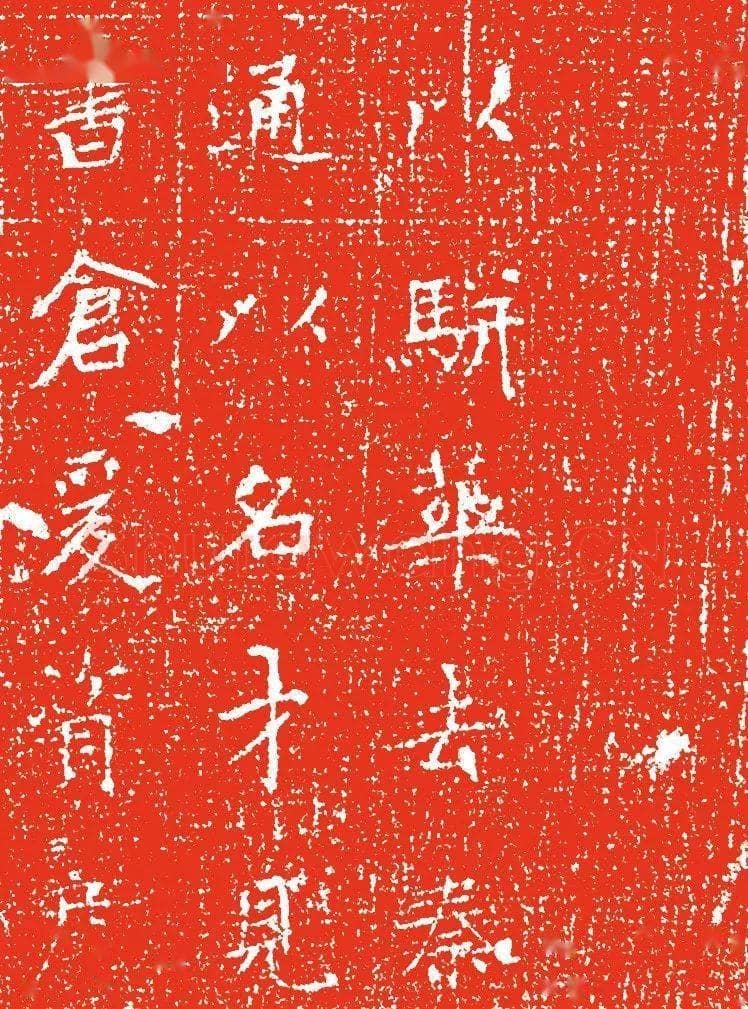 以駢華去泰
通以名才見
書倉爰肖